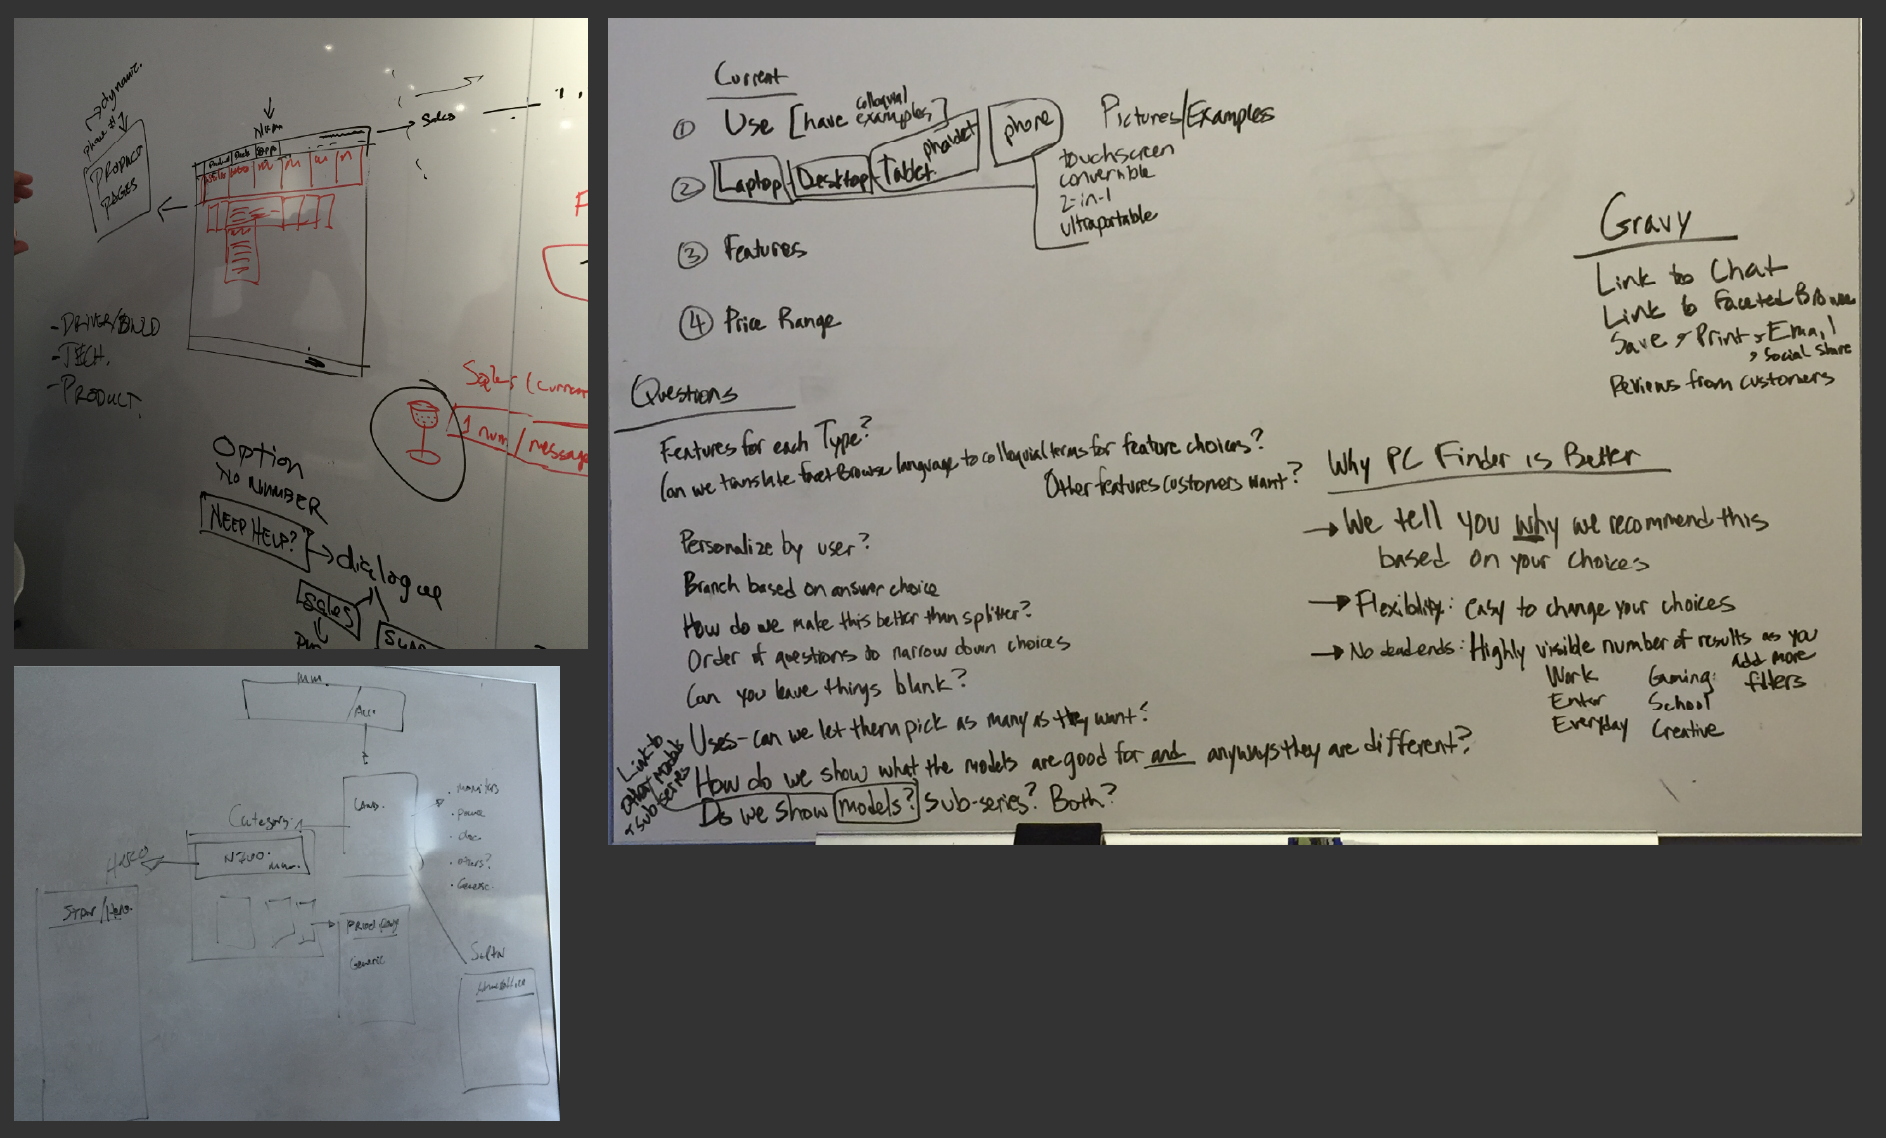 dynamic.
phone #
PRODUCT
PAGES
Num
Sales
- DRIVER/BUILD
- TECH.
- PRODUCT.
Sales (current
1 num / message
Option
NO NUMBER
NEED HELP?
dialogue
Sales
Current
① Use [have colloquial examples]
② Laptop Desktop Tablet phablet phone
Pictures/Examples
touchscreen
convertible
2-in-1
ultraportable
③ Features
④ Price Range
Gravy
Link to Chat
Link to Faceted Browse
Save, Print, Email
, Social Share
Reviews from customers
Questions
Features for each Type?
Can we translate facet Browse language to colloquial terms for feature choices?
Other features customers want?
Personalize by user?
Branch based on answer choice
How do we make this better than splitter?
Order of questions to narrow down choices
Can you leave things blank?
Uses - can we let them pick as many as they want?
How do we show what the models are good for and anyways they are different?
Do we show models? Sub-series? Both?
Link to
other models
+ sub-series
Why PC Finder is Better
→ We tell you why we recommend this
based on your choices
→ Flexiblity: easy to change your choices
→ No deadends: Highly visible number of results as you
add more
filters
Work Gaming
Enter School
Everyday Creative
mm.
Acc.
Category
Land.
. monitors
. power
. doc
. others?
. Generic
Generic